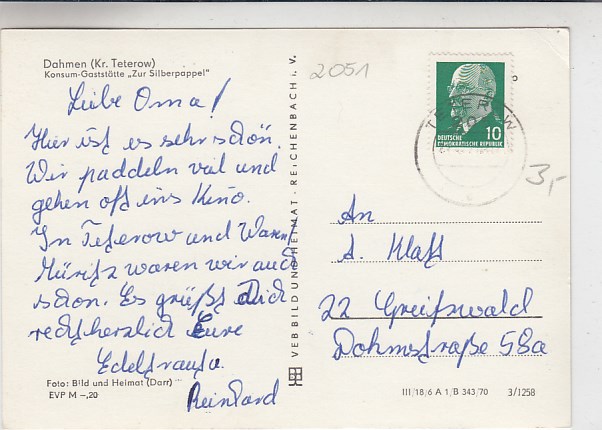 Dahmen (Kr. Teterow)
Konsum-Gaststätte „Zur Silberpappel"
Liebe Oma!
Hier ist es sehr schön.
Wir paddeln viel und
gehen oft ins Kino.
In Teterow und Waren
Müritz waren wir auch
schon. Es grüßt Dich
recht herzlich Eure
Edeltraut u.
Reinhard
Foto: Bild und Heimat (Darr)
EVP M –,20
VEB BILD UND HEIMAT · REICHENBACH i. V.
2051
TETEROW
10
DEUTSCHE
DEMOKRATISCHE REPUBLIK
3,-
An
A. Klatt
22 Greifswald
Dohmstraße 58a
III/18/6 A 1/B 343/70 3/1258